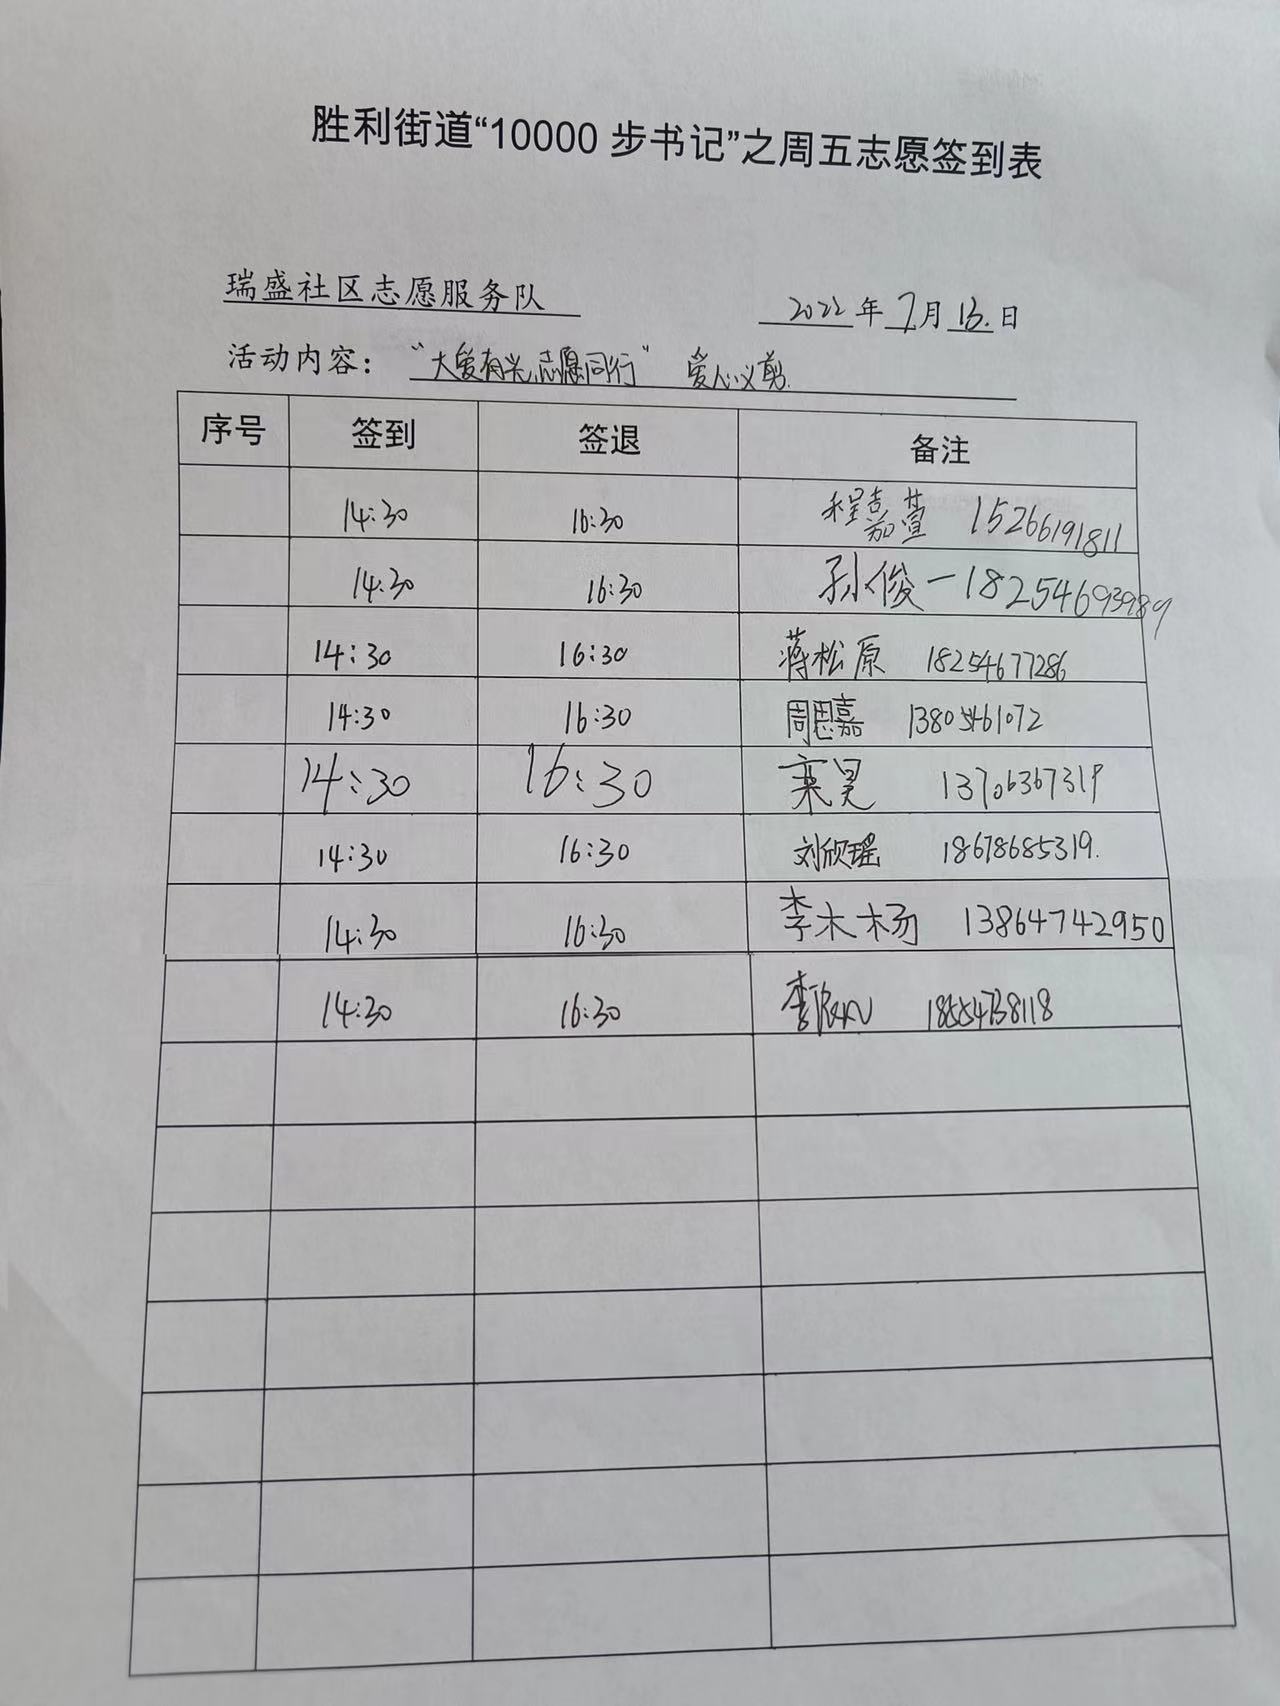 胜利街道“10000 步书记”之周五志愿签到表
瑞盛社区志愿服务队 2022 年 7 月 13. 日
活动内容： “大爱有光,志愿同行” 爱心义剪.
序号 签到 签退 备注
14:30 16:30 程嘉萱 15266191811
14:30 16:30 孙俊一 18254693989
14:30 16:30 蒋松原 18254677286
14:30 16:30 周思嘉 13805461072
14:30 16:30 栾昊 13706367319
14:30 16:30 刘欣瑶 18678685319.
14:30 16:30 李木杨 13864742950
14:30 16:30 李 18554738118